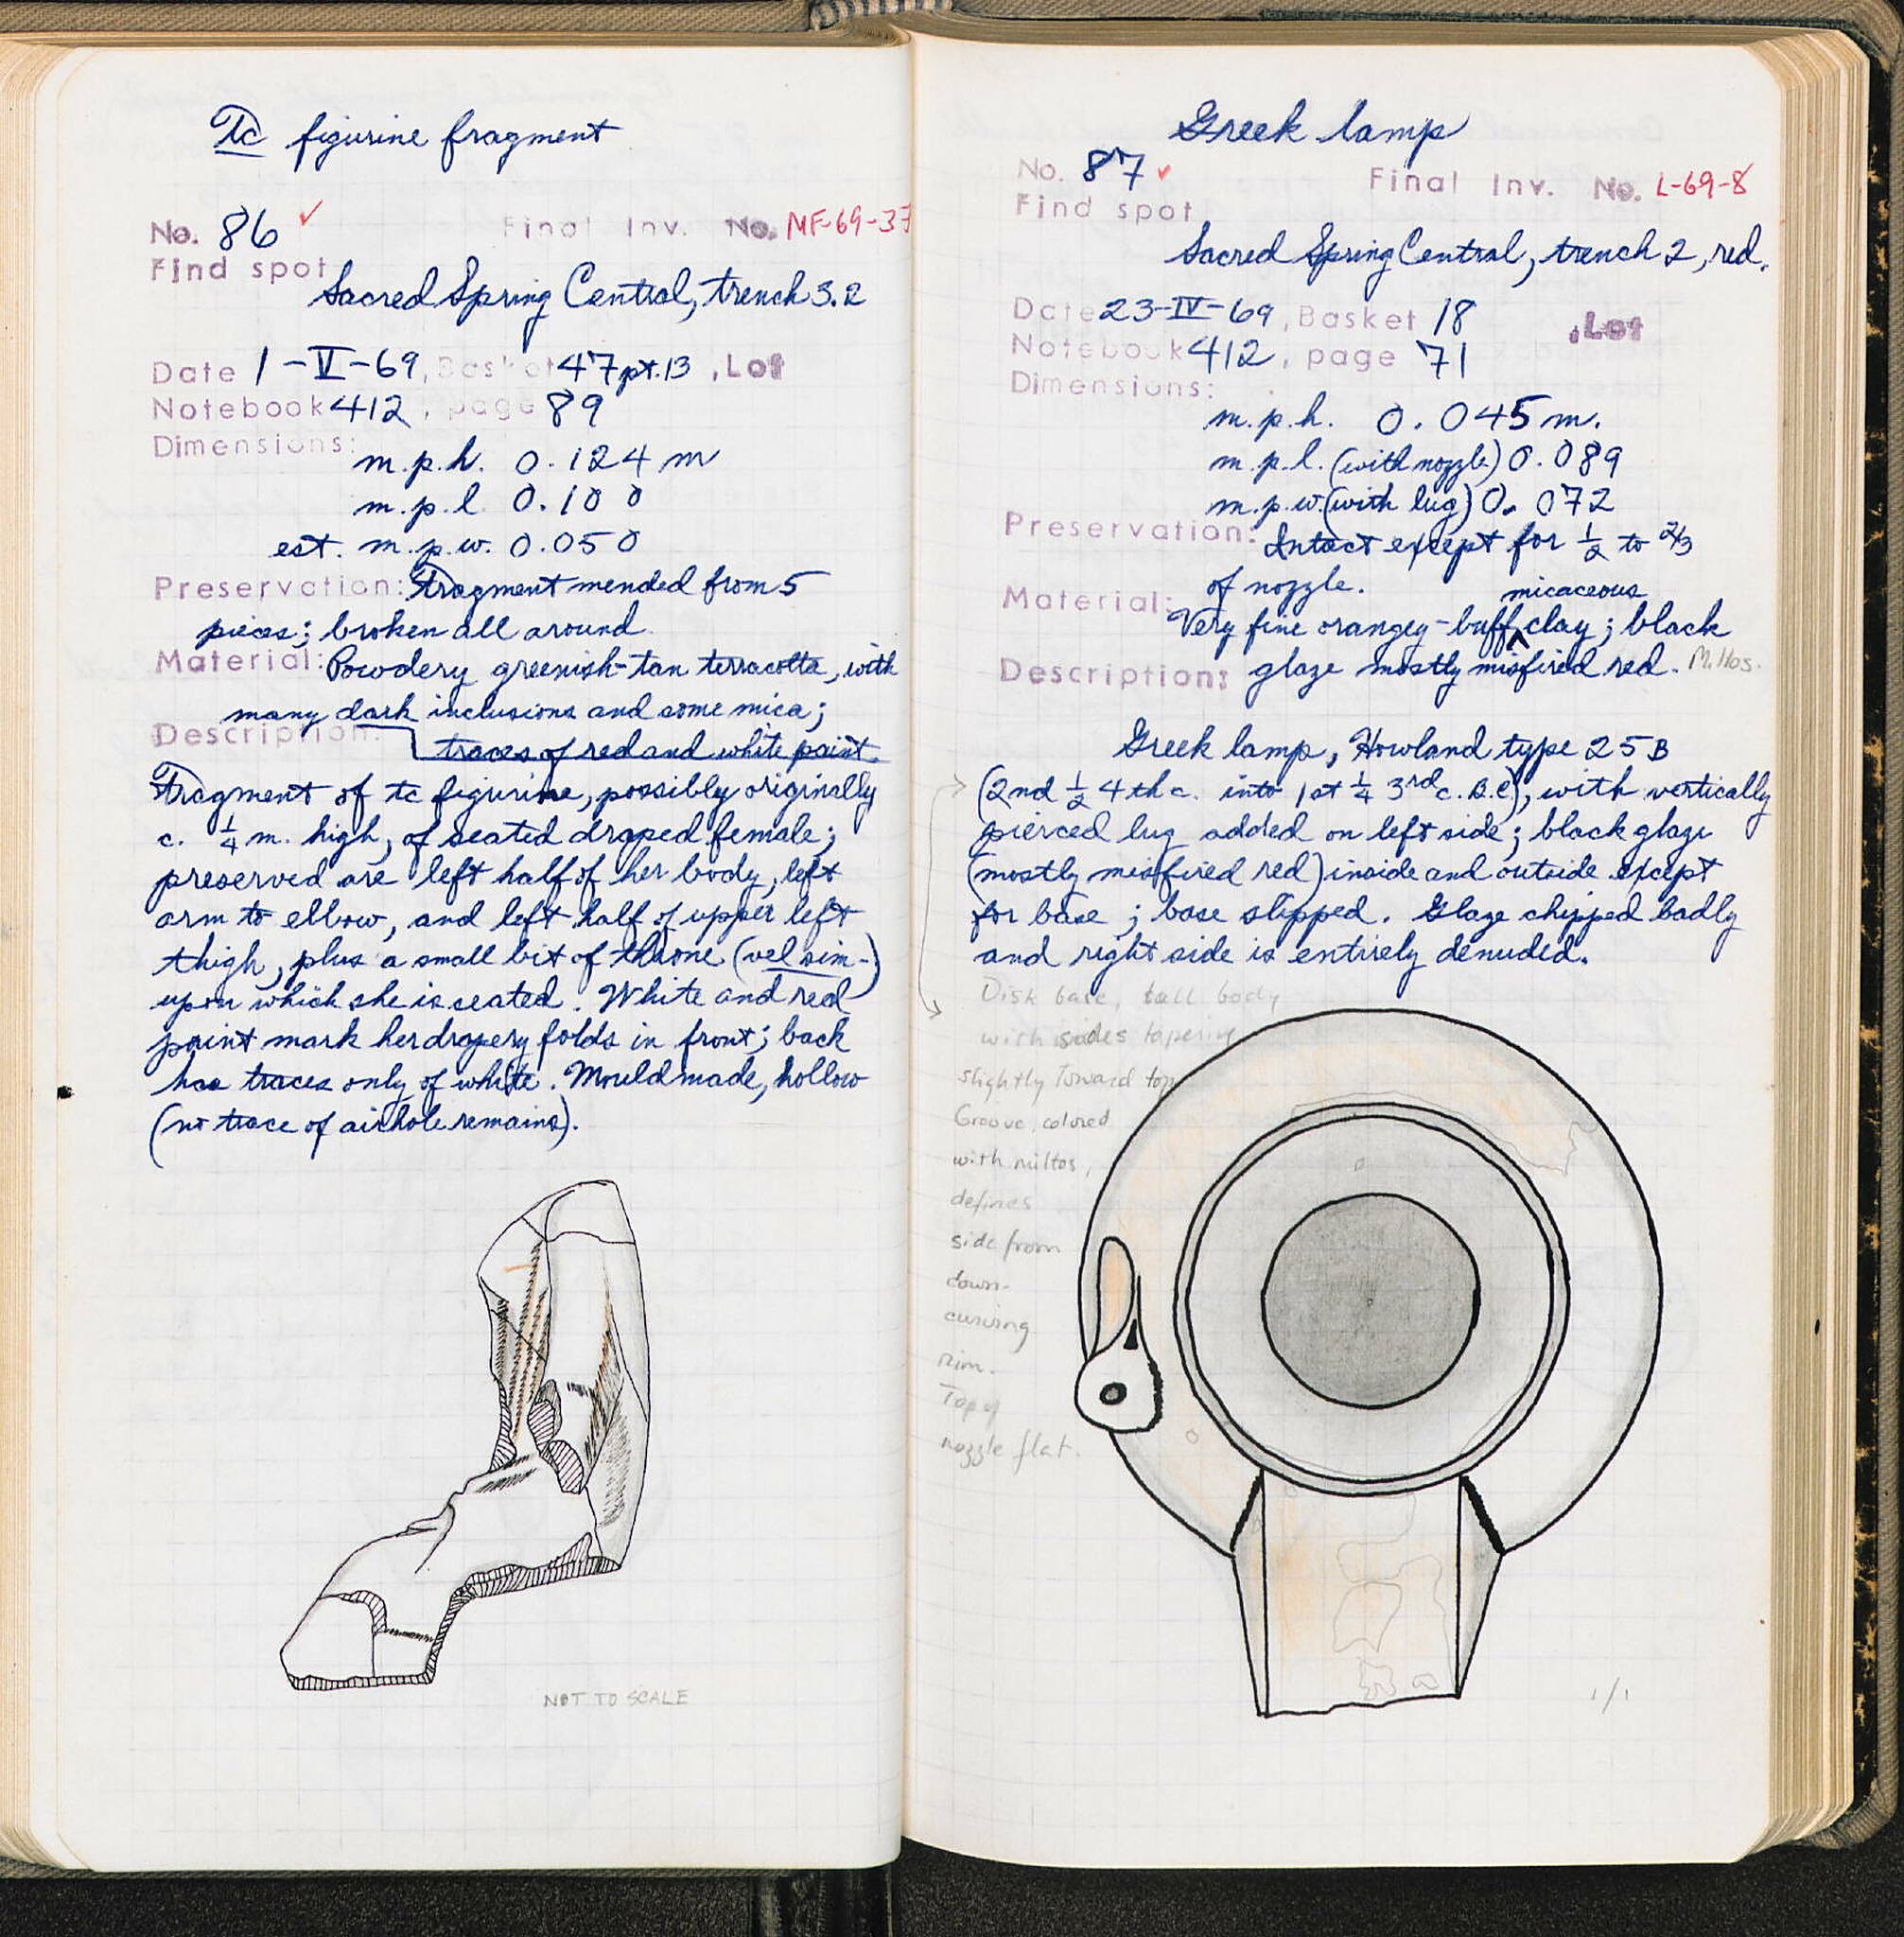 Tc figurine fragment
No. 86 ✓ Final Inv. No. MF-69-37
Find spot
Sacred Spring Central, trench 3.2
Date 1-V-69, Basket 47 pt. 13, Lot
Notebook 412, page 89
Dimensions:
m.p.h. 0.124 m
m.p.l. 0.100
est. m.p.w. 0.050
Preservation: Fragment mended from 5
pieces; broken all around
Material: Powdery greenish-tan terracotta, with
many dark inclusions and some mica;
Description:
traces of red and white paint.
Fragment of tc figurine, possibly originally
c. 1/4 m. high, of seated draped female;
preserved are left half of her body, left
arm to elbow, and left half of upper left
thigh, plus a small bit of throne (vel sim-)
upon which she is seated. White and red
paint mark her drapery folds in front; back
has traces only of white. Mouldmade, hollow
(no trace of airhole remains).
NOT TO SCALE
Greek lamp
No. 87 ✓ Final Inv. No. L-69-8
Find spot
Sacred Spring Central, trench 2, red.
Date 23-IV-69, Basket 18, Lot
Notebook 412, page 71
Dimensions:
m.p.h. 0.045 m.
m.p.l. (with nozzle) 0.089
m.p.w. (with lug) 0.072
Preservation: Intact except for 1/2 to 2/3
of nozzle. micaceous
Material: Very fine orangey-buff ^ clay; black
Description: glaze mostly misfired red. Miltos.
Greek lamp, Howland type 25 B
(2nd 1/2 4th c. into 1st 1/4 3rd c. B.C.), with vertically
pierced lug added on left side; black glaze
(mostly misfired red) inside and outside except
for base; base slipped. Glaze chipped badly
and right side is entirely denuded.
Disk base, tall body
with sides tapering
slightly toward top
Groove, colored
with miltos,
defines
side from
down-
curving
rim.
Top of
nozzle flat.
1/1